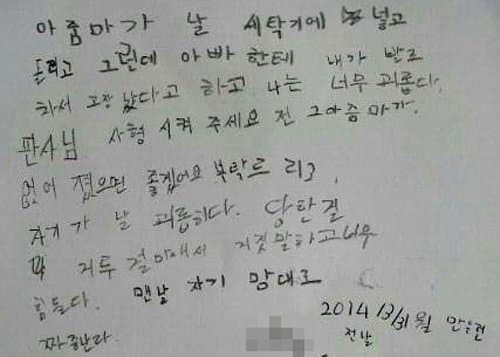 아줌마가 날 세탁기에 널고
돌리고 그런데 아빠한테 내가 발로
차서 고장 났다고 하고 나는 너무 괴롭다.
판사님 사형 시켜 주세요 전 그아줌마가.
없어 졌으면 좋겠어요 부탁르 리고,
자기가 날 괴롱히다. 당한걸
거짓말하고너무
힘들다. 맨날 자기 맘대로
짜증난다.
2014
전남